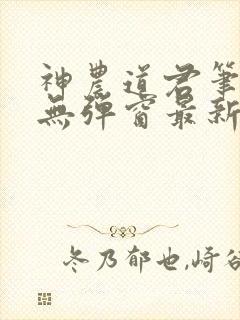 神農道君筆
無彈窗最新
冬乃郁也,崎谷